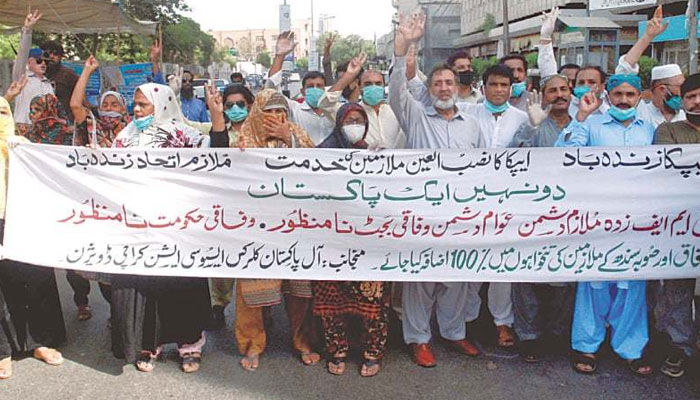 اپپکا زندہ باد ایپکا کا نصب العین ملازمین کی خدمت ملازم اتحاد زندہ باد
دو نہیں ایک پاکستان
ایم ایف زدہ ملازم دشمن عوام دشمن وفاقی بجٹ نامنظور۔ وفاقی حکومت نامنظور
وفاق اور صوبہ سندھ کے ملازمین کی تنخواہوں میں 100% اضافہ کیا جائے۔ منجانب: آل پاکستان کلرکس ایسوسی ایشن کراچی ڈویژن۔